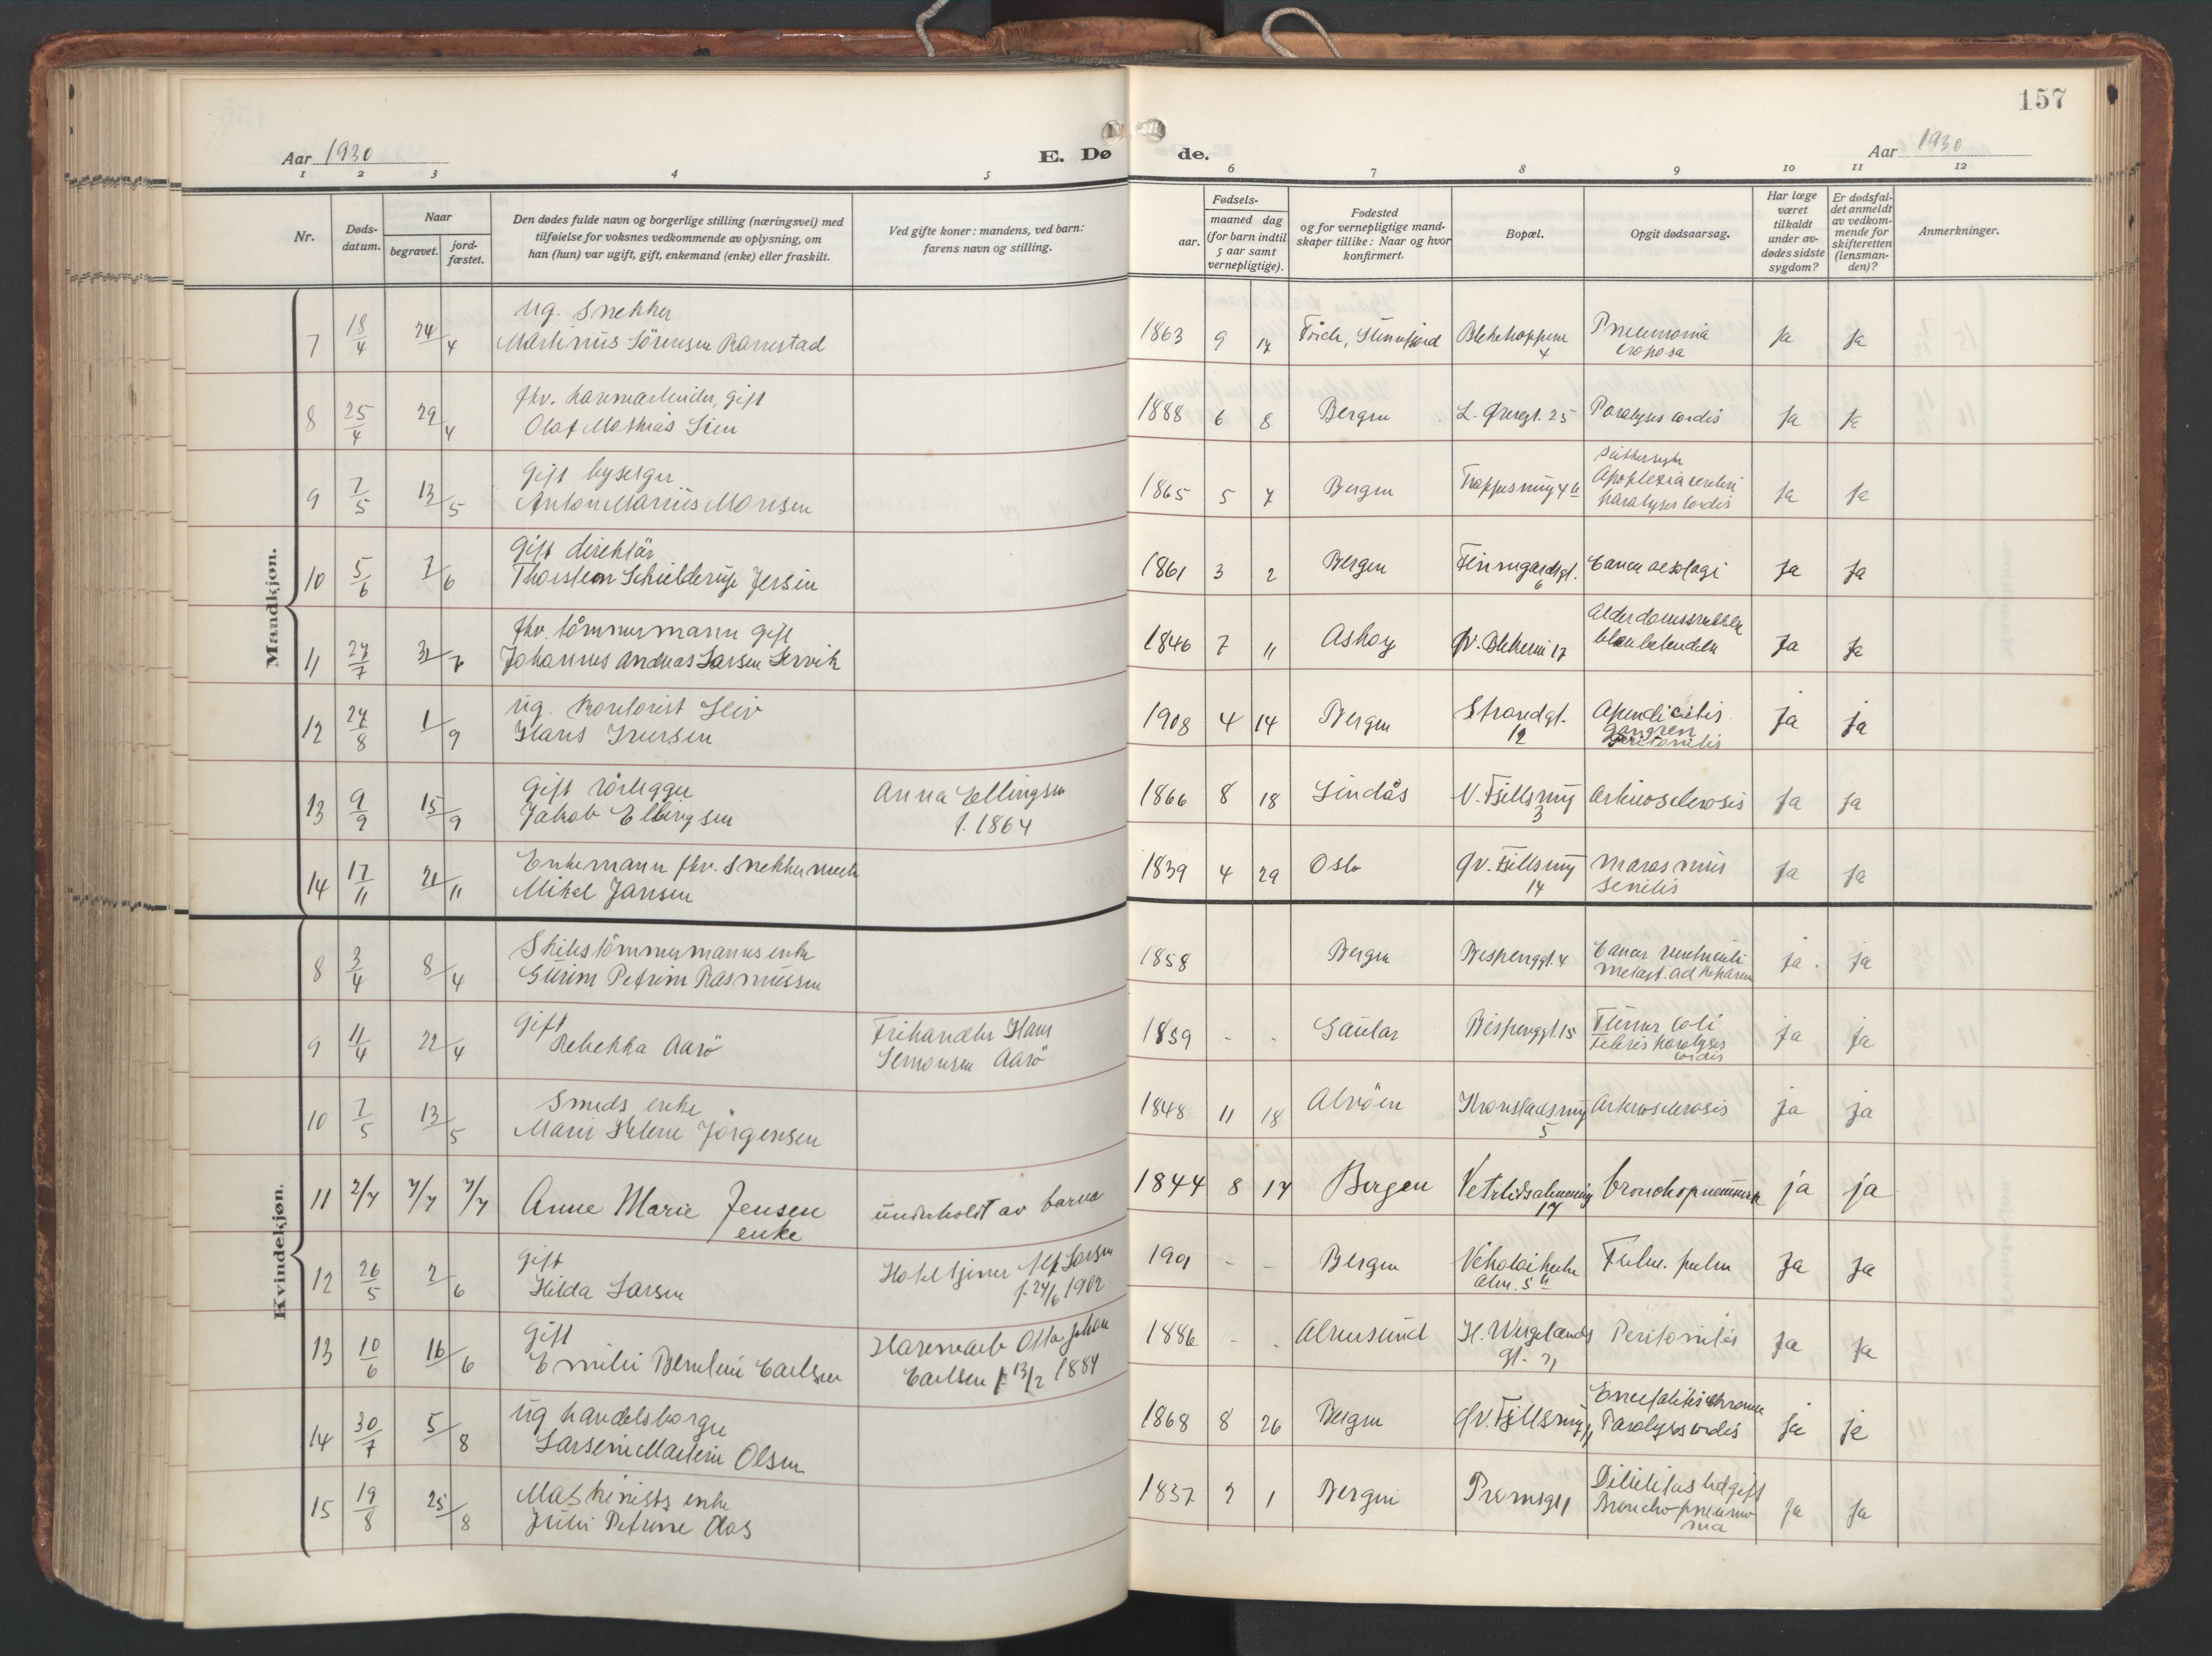 157
Aar 1930
E. Dø
de.
Aar 1930
1 2 3 4 5 6 7 8 9 10 11 12
Nr.
Døds-
datum.
Naar
begravet.
jord-
fæstet.
Den dødes fulde navn og borgerlige stilling (næringsvei) med
tilføielse for voksnes vedkommende av oplysning, om
han (hun) var ugift, gift, enkemand (enke) eller fraskilt.
Ved gifte koner: mandens, ved barn:
farens navn og stilling.
Fødsels-
aar.
maaned dag
(for barn indtil
5 aar samt
vernepligtige).
Fødested
og for vernepligtige mand-
skaper tillike: Naar og hvor
konfirmert.
Bopæl.
Opgit dødsaarsag.
Har læge
været
tilkaldt
under av-
dødes sidste
sygdom?
Er dødsfal-
det anmeldt
av vedkom-
mende for
skifteretten
(lensman-
den)?
Anmerkninger.
Mandkjøn.
7 18/4 24/4 Ug. Snekker
Martinus Sörensen
1863 9 17
4
Pneumonia
croposa
Ja Ja
8 25/4 29/4 fhv. havnearbeider, gift
Olaf Mathias Lien
1888 6 8 Bergen L. Øvregt. 25 Paralyses cordis Ja Ja
9 7/5 13/5 Gift byselger
Anton Marius Monsen
1865 5 7 Bergen
Apoplexia cerebri
paralyses cordis
Ja Ja
10 5/6 7/6 Gift direktör
Thorstein Schielderup Jersin
1861 3 2 Bergen Finnegårdsgt.
6
Cancer oesofagi Ja Ja
11 27/7 31/7 fhv. tömmermann gift
Johannes Andreas Larsen Lervik
1846 7 11 Askøy Øv. Blekevei 17
Ja Ja
12 27/8 1/9 Ug. Kontorist Leiv
Hans Iversen
1908 4 14 Bergen Strandgt.
12
Apendicitis
gangren
peritonitis
ja ja
13 9/9 15/9 Gift rörlegger
Jakob Ellingsen
Anna Ellingsen
f. 1864
1866 8 18 Lindås N. Fjellsmug
3
Arteriosclerosis Ja Ja
14 17/11 21/11 Enkemann fhv. Snekkermester
Mikal Jansen
1839 4 29 Oslo Øv. Fjellsmug
14
Marasmus
senilis
Ja Ja
Kvindekjøn.
8 3/4 8/4 Skibstömmermanns enke
Gurine Petrine Rasmussen
1858 Bergen Bispenggt. 4 Cancer ventriculi
metast. ad heparem
ja ja
9 11/4 22/4 Gift
Rebekka Aarö
Frihandler Hans
Simonsen Aarö
1859 - - Gaular Bispenggt. 15 Tumor coli
Febris paralyses
cordis
ja ja
10 7/5 13/5 Smeds enke
Marie Helene Jörgensen
1848 11 18 Alvöen Kronstadsmug
5
Arteriosclerosis ja ja
11 2/7 7/7 7/7 Anne Marie Jensen
enke
underholdt av barna
1844 8 17 Bergen Vetrlidsalmening
17
bronchopneumoni ja ja
12 26/5 2/6 Gift
Hilda Larsen
Hoteltjener Alf Larsen
f. 24/6 1902
1901 - - Bergen Nikolaikirke
alm. 5
Tub. pulm Ja Ja
13 10/6 16/6 Gift
Emilie Berntine Carlsen
Havnearb Otto Johan
Carlsen f 13/2 1884
1886 - - Alversund H. Wergelands
gt.
Peritonitis Ja Ja
14 30/7 5/8 Ug handelsborger
Larsine Martine Olsen
1868 8 26 Bergen Øv. Fjellsmug 11 Encefalitis chronica
Paralyses cordis
Ja ja
15 19/8 25/8 Maskinists enke
Julie Petrine Aas
1837 2 1 Bergen Promsgt
Debilitas
Bronchopneumo
nia
Ja Ja